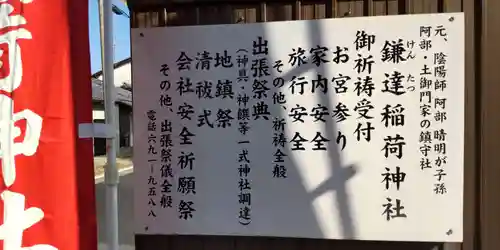 元、陰陽師 阿部 晴明が子孫
阿部・土御門家の鎮守社
鎌達稲荷神社
けん たつ
御祈祷受付
お宮参り
家内安全
旅行安全
その他、祈祷全般
出張祭典
(神具・神饌等一式神社調達)
地鎮祭
清祓式
会社安全祈願祭
その他、出張祭儀全般
電話六九一―九五八八
荷神社